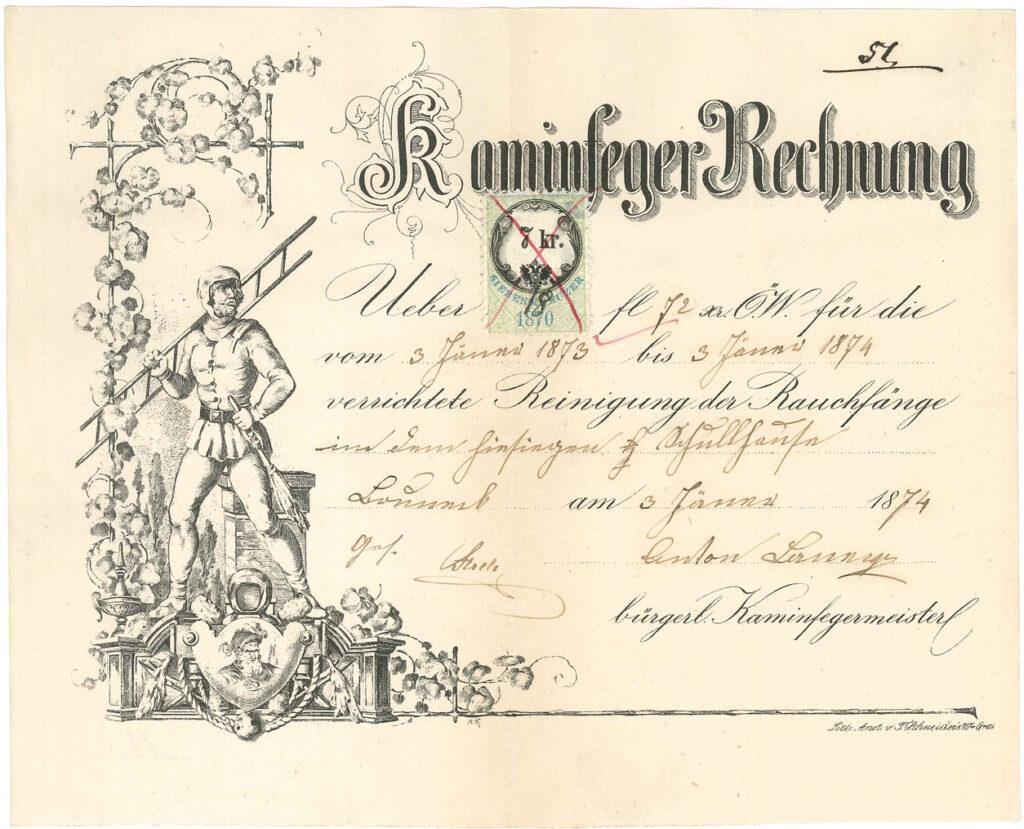 51,
Kaminfeger Rechnung
7 kr.
SIEBEN KREUZER
1870
Ueber 18 fl 72 xr. Ö.W. für die
vom 3 Jäner 1873 bis 3 Jäner 1874
verrichtete Reinigung der Rauchfänge
in dem hiesigen Schullhause
am 3 Jäner 1874
Ges.
Anton
bürgerl. Kaminfegermeister
Lith. Anst. v. Schneider's Wwe Graz